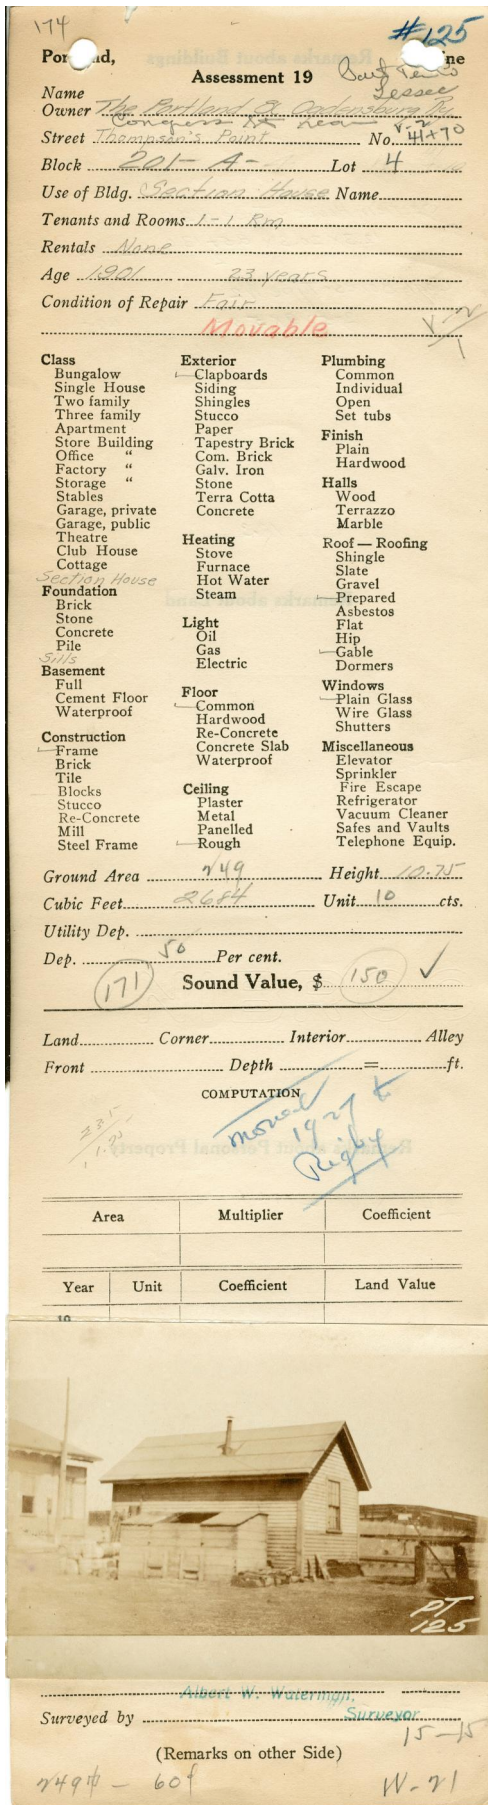 174 #125
Portland, Maine
Assessment 19
Lessee
Name
Owner The Portland & Ogdensburg Ry
Congress St near
Street Thompson's Point No. 41+70
Block 201-A- Lot 4
Use of Bldg. Section House Name
Tenants and Rooms 1-1 Rm
Rentals None
Age 1901 23 years
Condition of Repair Fair
Movable
Class
Bungalow
Single House
Two family
Three family
Apartment
Store Building
Office "
Factory "
Storage "
Stables
Garage, private
Garage, public
Theatre
Club House
Cottage
Section House
Foundation
Brick
Stone
Concrete
Pile
Sills
Basement
Full
Cement Floor
Waterproof
Construction
Frame
Brick
Tile
Blocks
Stucco
Re-Concrete
Mill
Steel Frame
Exterior
Clapboards
Siding
Shingles
Stucco
Paper
Tapestry Brick
Com. Brick
Galv. Iron
Stone
Terra Cotta
Concrete
Heating
Stove
Furnace
Hot Water
Steam
Light
Oil
Gas
Electric
Floor
Common
Hardwood
Re-Concrete
Concrete Slab
Waterproof
Ceiling
Plaster
Metal
Panelled
Rough
Plumbing
Common
Individual
Open
Set tubs
Finish
Plain
Hardwood
Halls
Wood
Terrazzo
Marble
Roof — Roofing
Shingle
Slate
Gravel
Prepared
Asbestos
Flat
Hip
Gable
Dormers
Windows
Plain Glass
Wire Glass
Shutters
Miscellaneous
Elevator
Sprinkler
Fire Escape
Refrigerator
Vacuum Cleaner
Safes and Vaults
Telephone Equip.
Ground Area 249 Height 10.75
Cubic Feet 2684 Unit 10 cts.
Utility Dep.
Dep. 50 Per cent.
171 Sound Value, $ 150 ✓
Land Corner Interior Alley
Front Depth = ft.
COMPUTATION
moved
1927 to
Rigby
Area Multiplier Coefficient
Year Unit Coefficient Land Value
19
PT
125
Albert W. Waterman,
Surveyed by Surveyor
15-15
(Remarks on other Side)
249 - 60 W-21